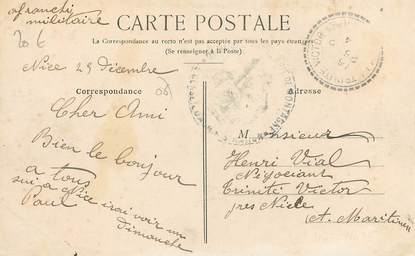 afranchi
militaire
20 6
CARTE POSTALE
La Correspondance au recto n'est pas acceptée par tous les pays étrangers
(Se renseigner à la Poste).
Nice 29 Décembre
06
Correspondance
Adresse
Cher Ami
Bien le bonjour
a tous
sui a Nice irai voir un
Dimanche
Paul
Monsieur
Henri Vial
Négociant
Trinité Victor
près Nice
A. Maritimes